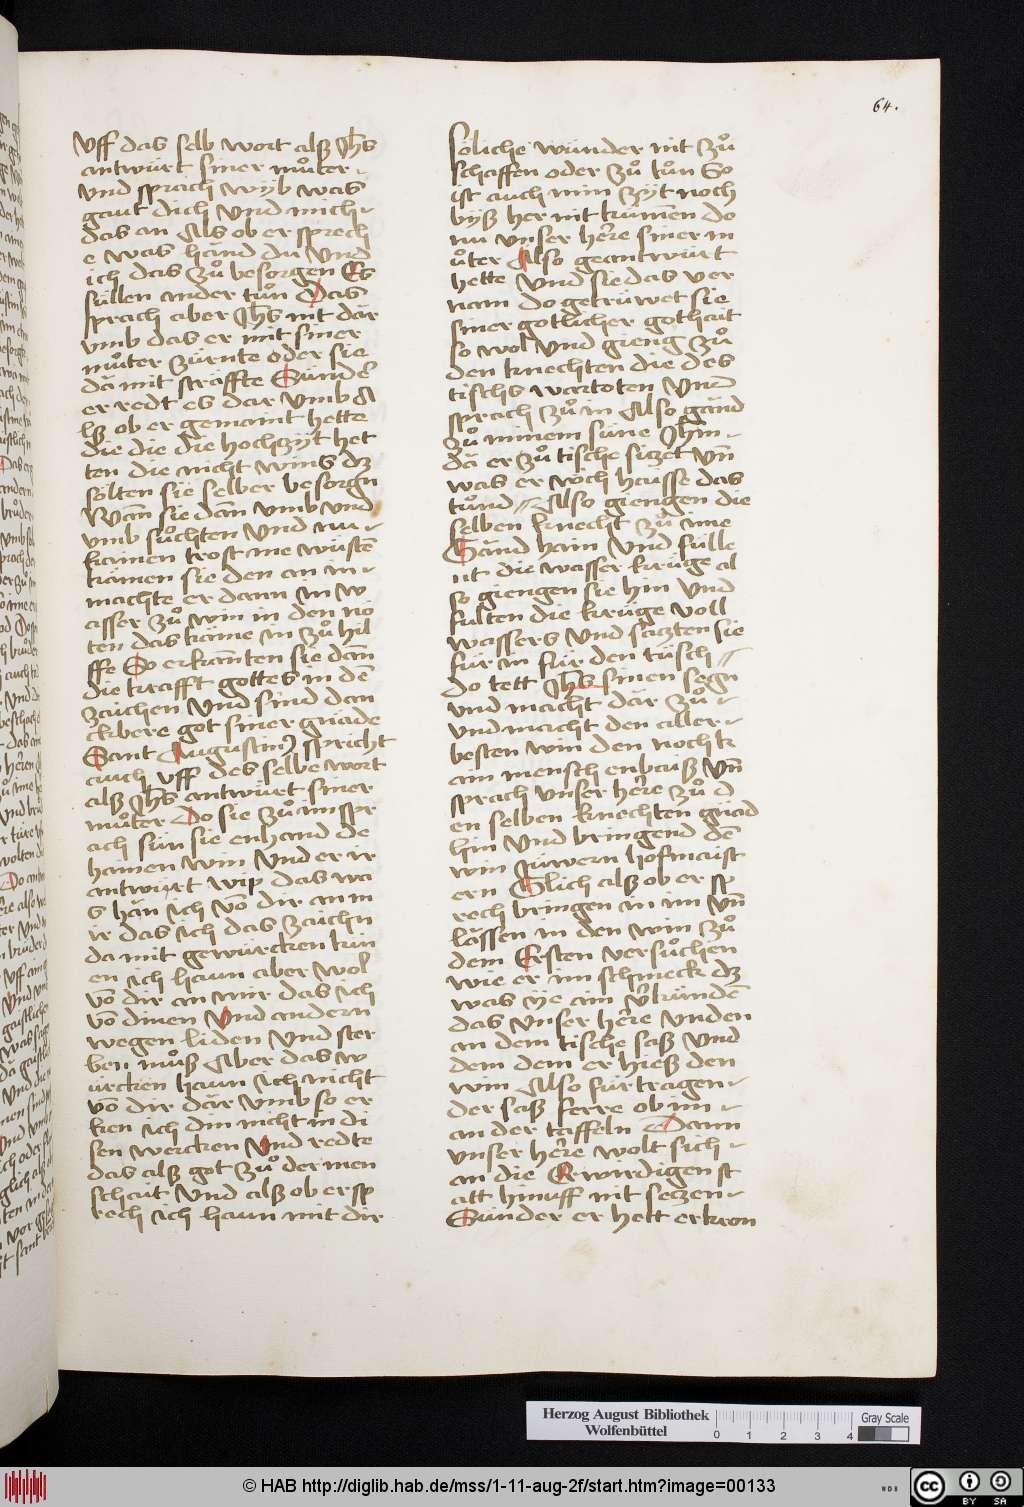 64.
vff das selb wort alß Jhs
antwürt siner muͦter
vnd sprach wyb was
gaut dich vnd mich
das an Als ob er sprech
e was händ du vnd
ich das zuͦ besorgen Es
süllen ander tuͦn Das
sprach aber Jhs nit där
vmb das er mit siner
muͦter zürnte oder sie
dä mit sträffte Sünder
er redt es dar vmb A
lß ob er gemaint hette
die die die hochzyt het
ten die nicht wins dz
sölten sie selber besorgn
Wan̄ sie dan̄ vmb vnd
vmb suͦchten vnd nu
kainen trost me wüsten̄
kämen sie den an in
machte er dann in w
asser zuͦ win in den nö
ten das käme in zuͦ hil
ffe So erkan̄ten sie dan̄
die krafft gottes in den̄
zaichen vnd sind dan
ckbere got siner gnäde
Sant Augustin9 spricht
auch vff des selbe wort
alß Jhs antwürt siner
muͦter Do sie zuͦ im spr
ach sün sie enhand de
hainen win vnd er ir
antwürt wip das wa
s hän ich vō dir an m
ir das ich das zaichn
da mit gewürcken kün
en ich haun aber wol
vō dir an mir das ich
vō dinen vnd andern
wegen liden vnd ster
ben muͦß Aber das w
ürcken haun ich nicht
vō dir där vmb so er
ken ich din nicht in di
sen wercken vnd redte
das alß got zuͦ der men
schait vnd alß ob er sp
rech ich haun mit dir
söliche wünder nit zuͦ
schaffen oder zuͦ tuͦn So
ist auch min zyt noch
byß her nit kumen̄ do
nu vnser here siner m
uͦter Also geantwürt
hette vnd sie das ver
nam do getrüwet sie
siner gotlicher gothait
so wol vnd gieng zuͦ
den knechten die des
tischs wartoten Vnd
sprach zuͦ in Also gänd
zuͦ minem süne Jhm
dä er zuͦ tische sitzet vn̄
was er wöch haisse das
tuͦnd Also giengen die
selben knecht zuͦ ime
Gänd hain vnd fülle
nt die wasser krüge al
so giengen sie hin vnd
fulten die krüge voll
wassers vnd sazten sie
für in für den tüsch
do tett Jhs sinen segn
vnd macht där zuͦ
vnd macht den aller
besten win den noch k
ain mensch enbaiß vn̄
sprach vnser here zuͦ d
en selben knechten gnäd
hin vnd bringend den̄
win Jüwern hofmaist
ern Glich alß ob er sp
rech bringen in im vn̄
lässen in den win zuͦ
dem Ersten versuͦchen
wie er im schmeck dz
was ye ain vrkünden̄
das vnser here vnden
an dem tische saß vnd
dem dem er hieß den
win Also für tragen
der saß ferre ob im
an der taffeln Dann
vnser here wolt sich
an die Erwirdigen st
att hinuff nit setzen
Sünder er hett erkron
Herzog August Bibliothek
Wolfenbüttel
0 1 2 3 4
Gray Scale
© HAB http://diglib.hab.de/mss/1-11-aug-2f/start.htm?image=00133
WDB
cc BY SA